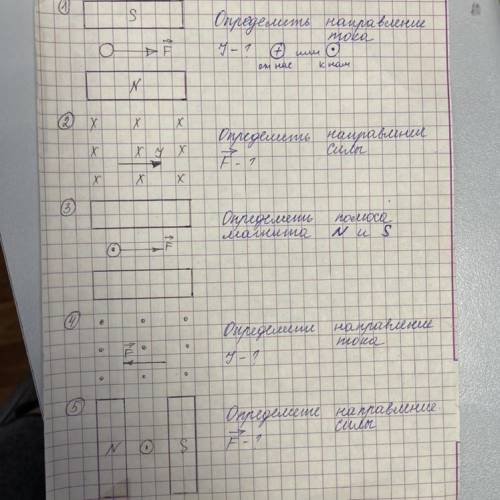 ① S Определить направление
тока
F J - ? ⊕ или ⊙
от нас к нам
N
② x x x
Определить направление
силы
x x J x
F - ?
x x x
③
Определить полюса
магнита N и S
F
④
Определите направление
тока
F
J - ?
⑤
Определите направление
силы
F - ?
N S